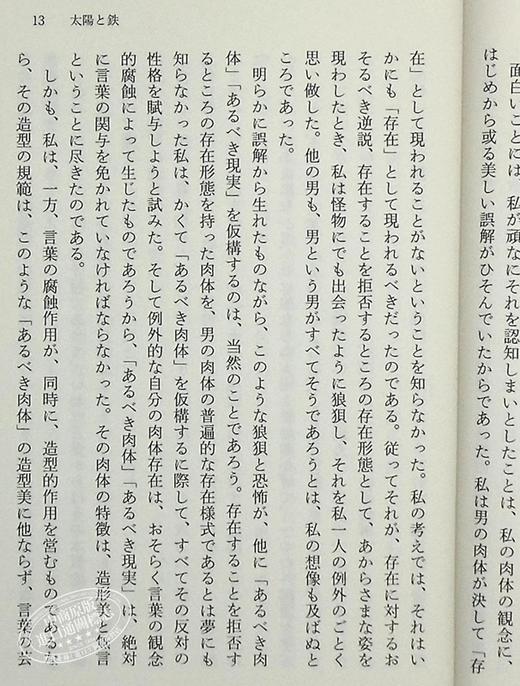 面白いことには、私が頑なにそれを認知しまいとしたことは、私の肉体の観念に、
はじめから或る美しい誤解がひそんでいたからであった。私は男の肉体が決して「存
13 太陽と鉄
在」として現われることがないということを知らなかった。私の考えでは、それはい
かにも「存在」として現われるべきだったのである。従ってそれが、存在に対するお
そるべき逆説、存在することを拒否するところの存在形態として、あからさまな姿を
現わしたとき、私は怪物にでも出会ったように狼狽し、それを私一人の例外のごとく
思い做した。他の男も、男という男がすべてそうであろうとは、私の想像も及ばぬと
ころであった。
明らかに誤解から生れたものながら、このような狼狽と恐怖が、他に「あるべき肉
体」「あるべき現実」を仮構するのは、当然のことであろう。存在することを拒否す
るところの存在形態を持った肉体を、男の肉体の普遍的な存在様式であるとは夢にも
知らなかった私は、かくて「あるべき肉体」を仮構するに際して、すべてその反対の
性格を賦与しようと試みた。そして例外的な自分の肉体存在は、おそらく言葉の観念
的腐蝕によって生じたものであろうから、「あるべき肉体」「あるべき現実」は、絶対
に言葉の関与を免かれていなければならなかった。その肉体の特徴は、造形美と無言
ということに尽きたのである。
しかも、私は、一方、言葉の腐蝕作用が、同時に、造型的作用を営むものであるな
ら、その造型の規範は、このような「あるべき肉体」の造型美に他ならず、言葉の芸